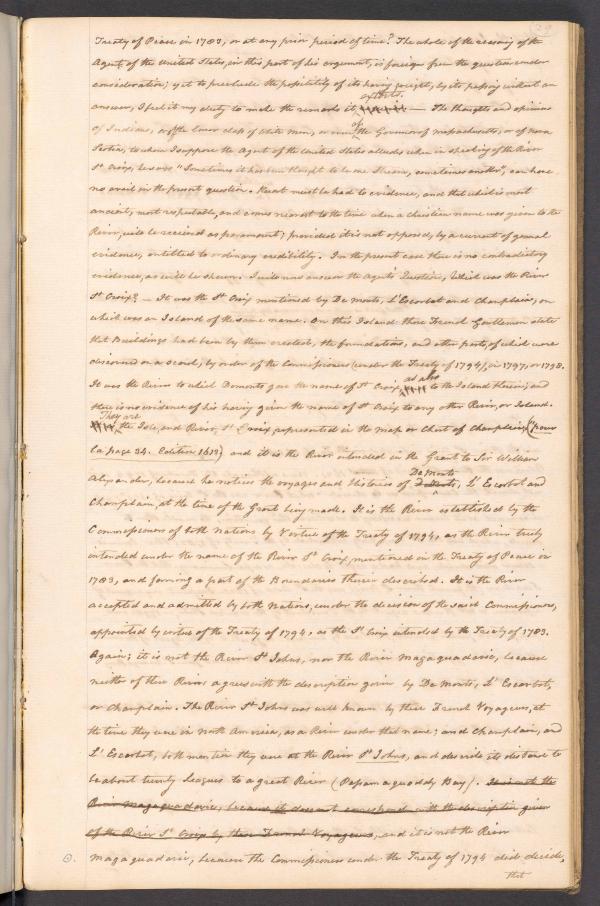 29
Treaty of Peace in 1783, or at any prior period of time? The whole of the reasoning of the
Agent, of the United States, in this part of his argument, is foreign from the question under
consideration; yet to preclude the possibility of its having weight, by its passing without an
answer, I feel it my duty to make the remarks it excites. — The thoughts and opinions
of Indians, or of the lower class of white men, or even of the Governor of Massachusetts, or of Nova
Scotia, to whom I suppose the Agent of the United States alludes when in speaking of the River
St Croix, he says "Sometimes it has been thought to be one Stream, sometimes another", can have
no avail in the present question. Recourse must be had to evidence, and that which is most
ancient, most respectable, and comes nearest to the time when a christian name was given to the
River, will be received as paramount; provided it is not opposed, by a current of general
evidence, entitled to ordinary credibility. In the present case there is no contradictory
evidence, as will be shewn. I will now answer the Agent's Question, Which was the River
St Croix? — It was the St Croix mentioned by De Monts, L'Escarbot and Champlain, on
which was an Island of the same name. On this Island these French Gentlemen state
that Buildings had been by them erected, the foundations, and other parts, of which were
discovered on a search, by order of the Commissioners (under the Treaty of 1794), in 1797, or 1798.
It was the River to which Demonts gave the name of St Croix, as also to the Island therein; and
there is no evidence of his having given the name of St Croix to any other River, or Island.
They are the Isle, and River, St Croix represented in the map or Chart of Champlain, (pour
la page 34. Edition 1613) and it is the River intended in the Grant to Sir William
Alexander, because he notices the voyages and Histories of De Monts, L'Escarbot and
Champlain, at the time of the Grant being made. It is the River established by the
Commissioners of both Nations by Vertue of the Treaty of 1794, as the River truly
intended under the name of the River St Croix, mentioned in the Treaty of Peace in
1783, and forming a part of the Boundaries therein described. It is the River
accepted and admitted by both Nations, under the decision of the said Commissioners,
appointed by virtue of the Treaty of 1794, as the St Croix intended by the Treaty of 1783.
Again; it is not the River St Johns, nor the River Magaguadavic, because
neither of these Rivers agrees with the description given by De Monts, L'Escarbot,
or Champlain. The River St Johns was well known by these French Voyageurs, at
the time they were in North America, as a River under that name; and Champlain, and
L'Escarbot, both mention they were at the River St Johns, and describe its distance to
be about twenty Leagues to a great River (Passamaquoddy Bay). It is not the
River Magaguadavic, because it does not correspond with the description given
of the River St Croix by these French Voyageurs, and it is not the River
Magaguadavic, because the Commissioners under the Treaty of 1794 did decide,
that